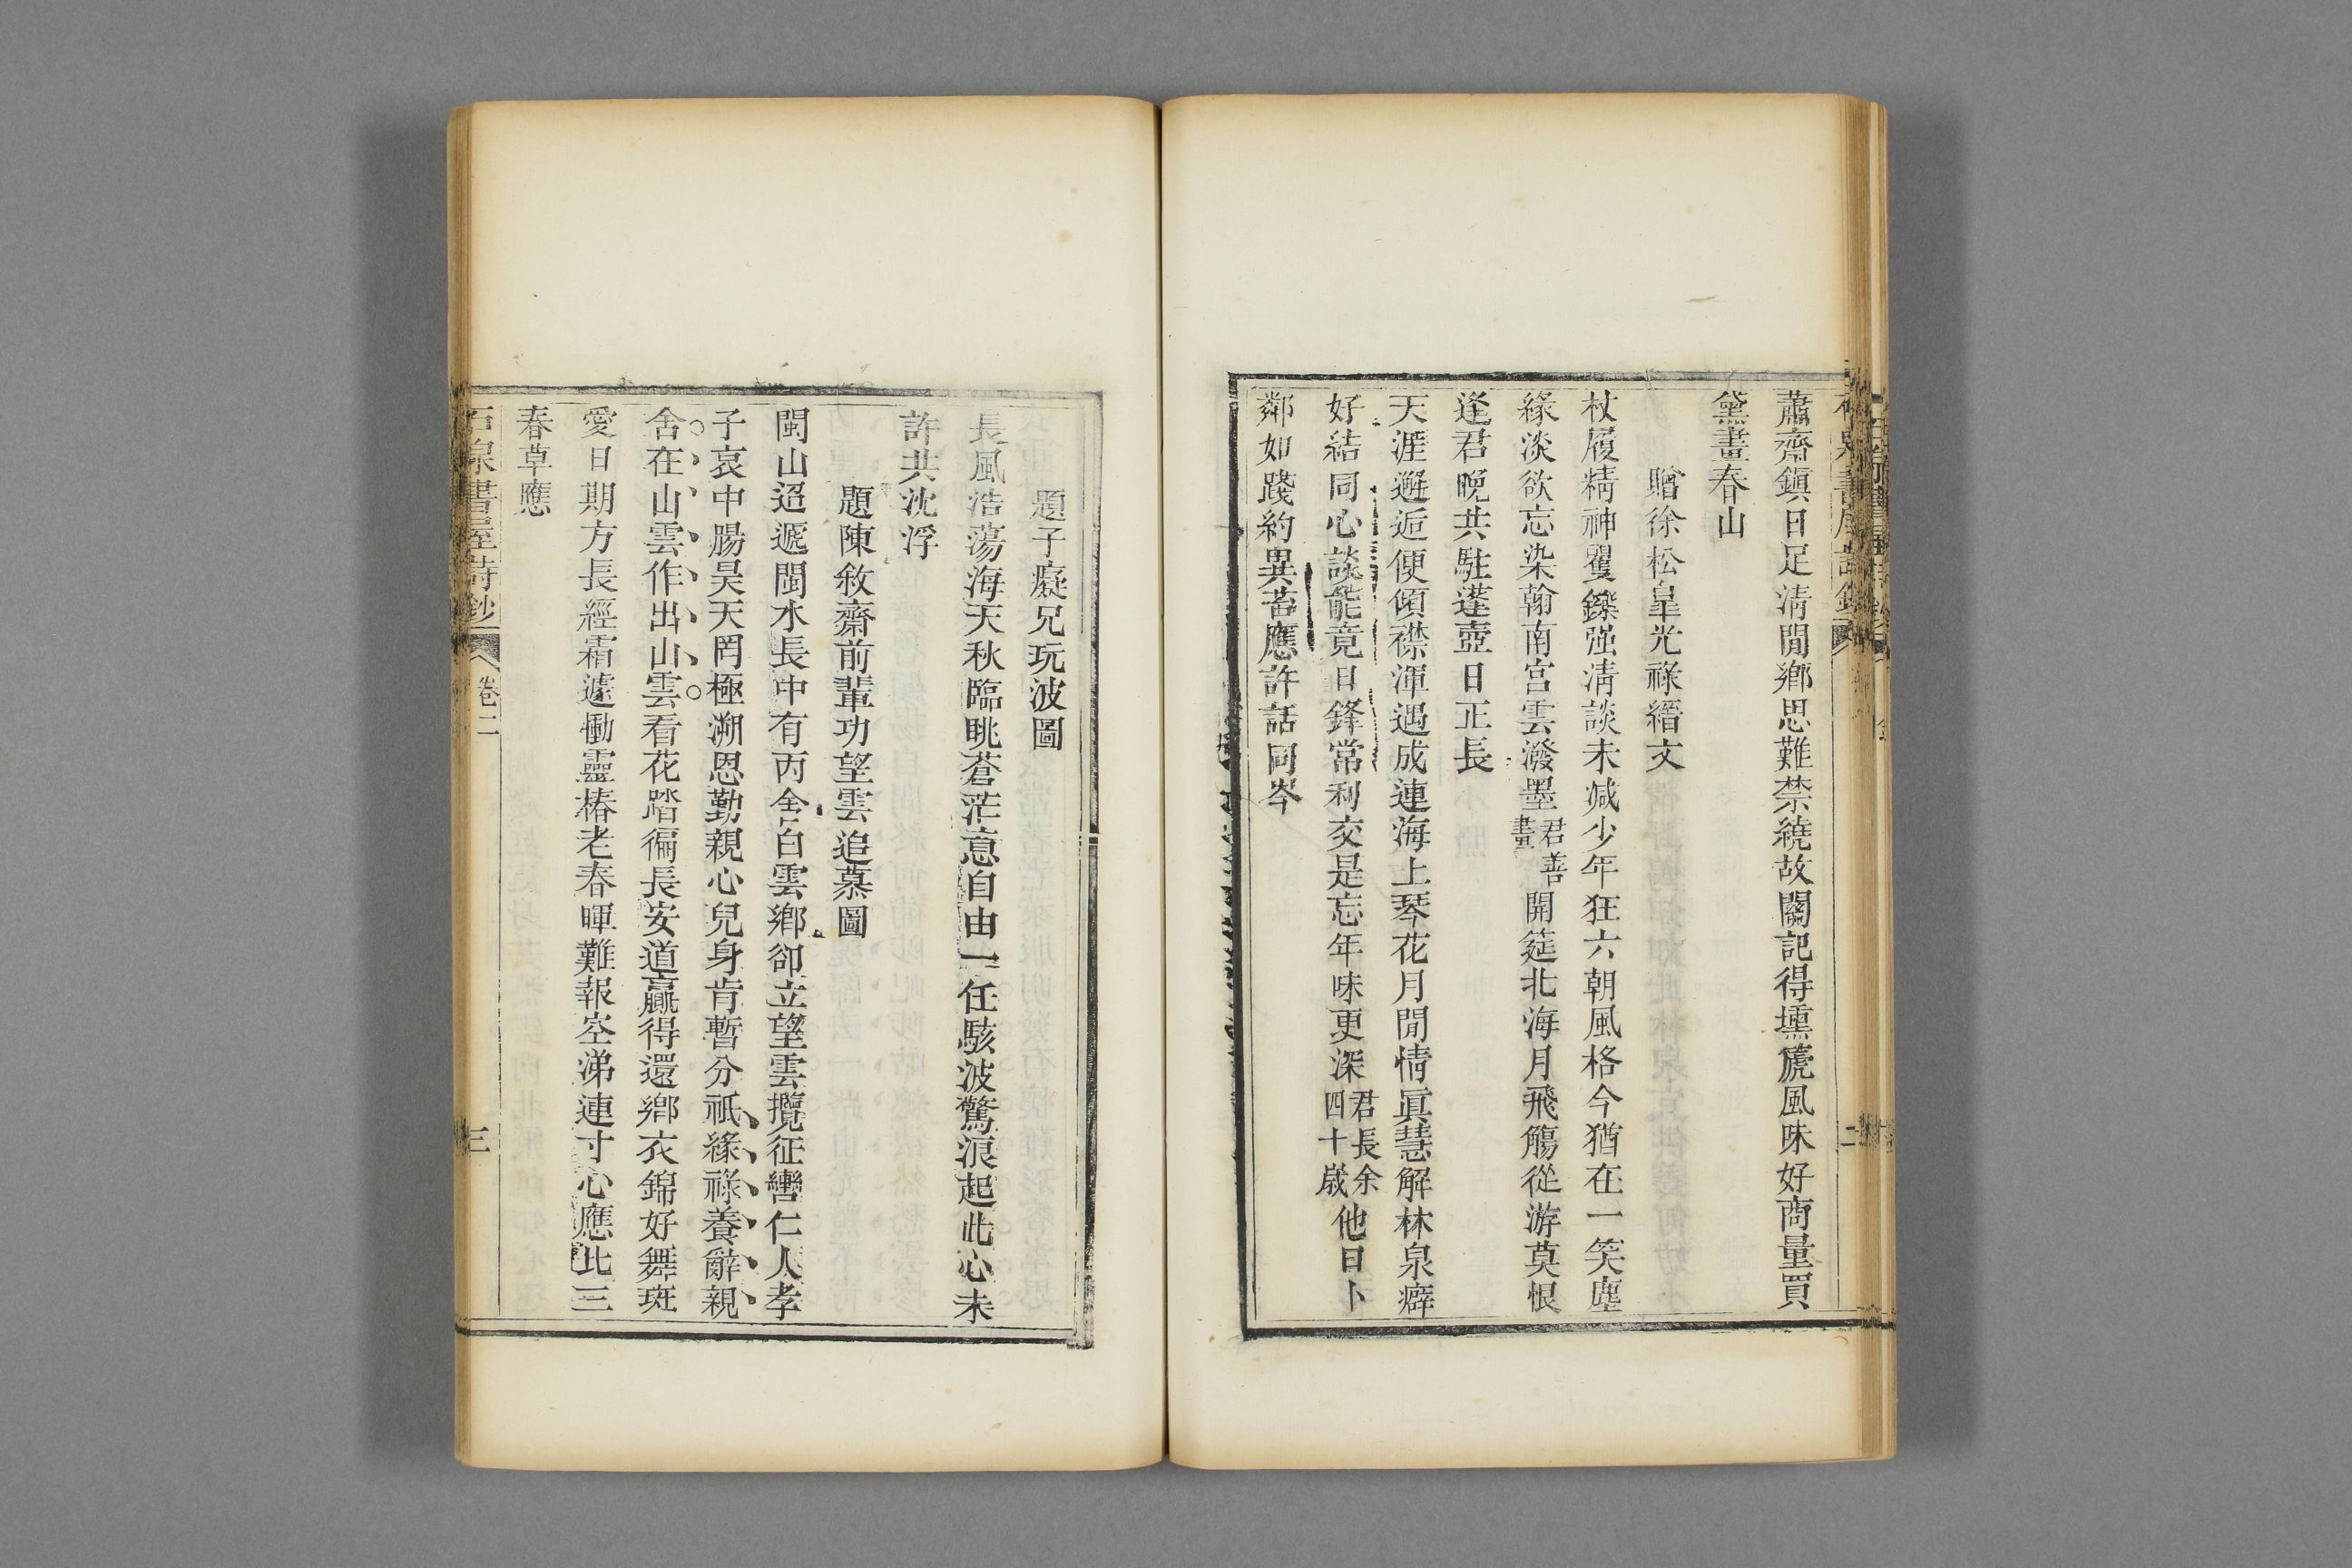 蕭齋鎭日足淸閒鄉思難禁繞故關記得壎篪風味好商量買
黛畫春山
贈徐松皐光祿縉文
杖履精神矍鑠强淸談未減少年狂六朝風格今猶在一笑塵
緣淡欲忘染翰南宮雲潑墨君善畫開筵北海月飛觴從游莫恨
逢君晚共駐蓬壺日正長
天涯邂逅便傾襟渾遇成連海上琴花月閒情眞慧解林泉癖
好結同心談能竟日鋒常利交是忘年味更深君長余四十歲他日卜
鄰如踐約異苔應許話同岑
題子癡兄玩波圖
長風浩蕩海天秋臨眺蒼茫意自由一任駭波驚浪起此心未
許共沈浮
題陳敘齋前輩功望雲追慕圖
閩山迢遞閩水長中有丙舍白雲鄉卻立望雲攬征轡仁人孝
子哀中腸昊天罔極溯恩勤親心兒身肯暫分祇緣祿養辭親
舍在山雲作出山雲看花踏徧長安道贏得還鄉衣錦好舞斑
愛日期方長經霜遽慟靈椿老春暉難報空涕連寸心應比三
春草應
石泉書屋詩鈔 卷二 三